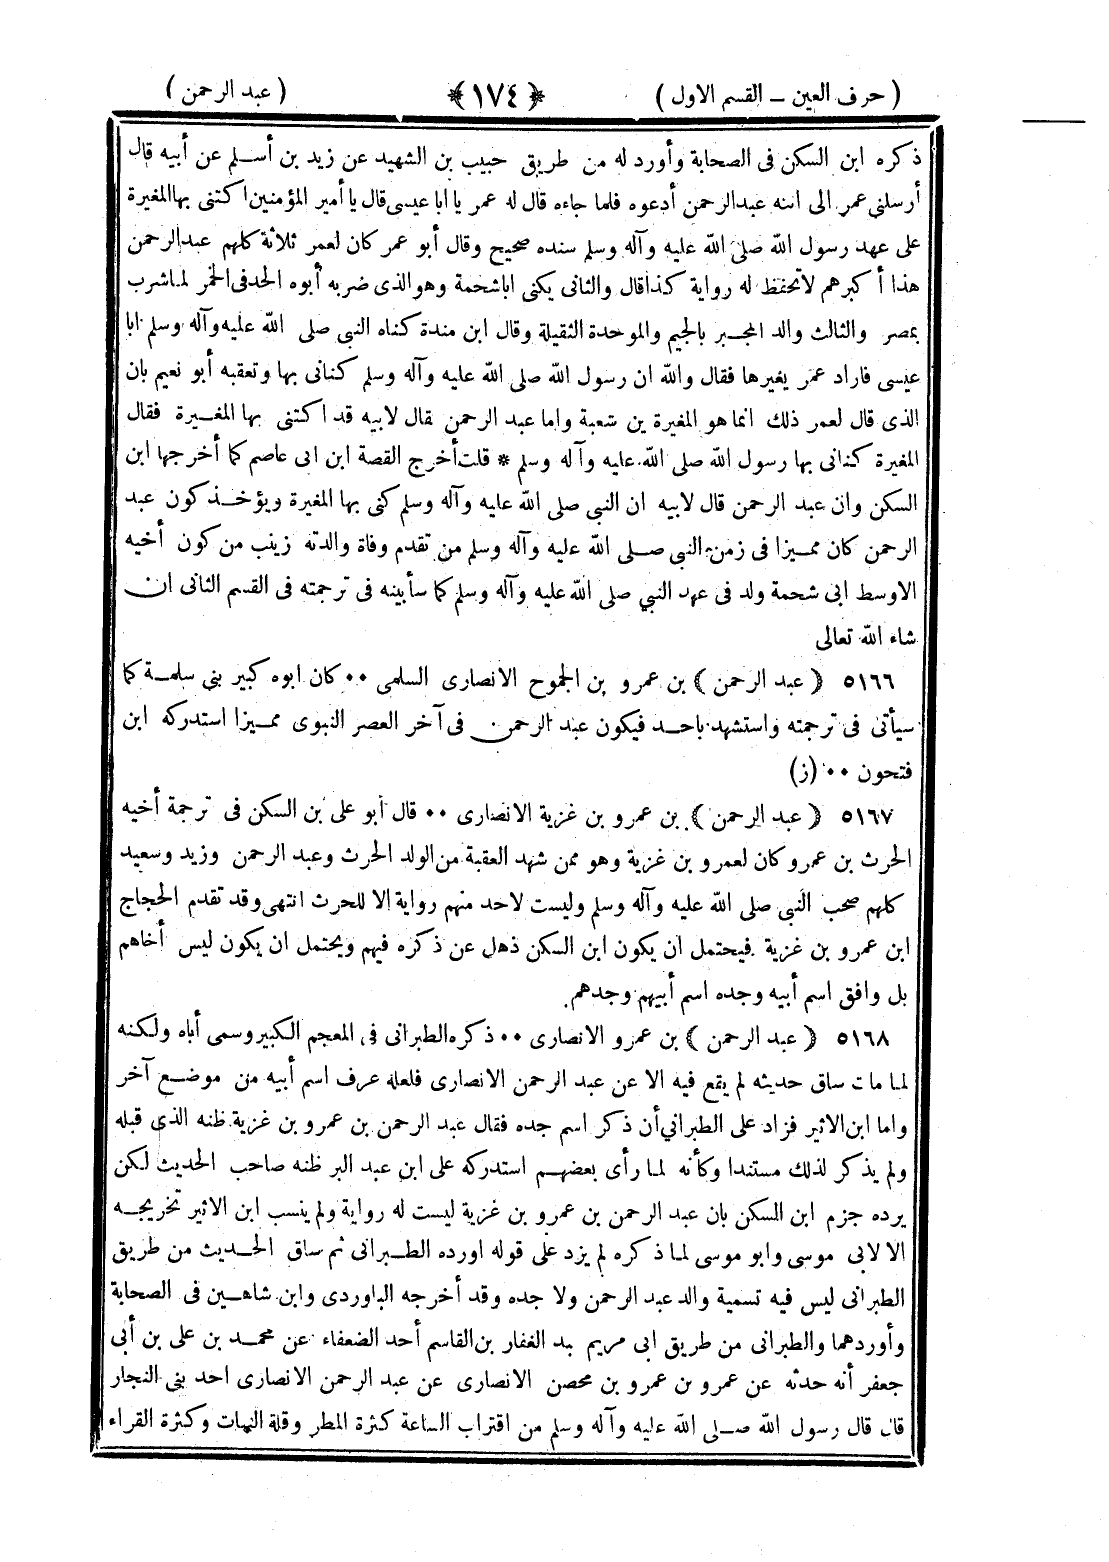 ( حرف العين ــ القسم الاول ) ﴿ ١٧٤ ﴾ ( عبد الرحمن )
ذكره ابن السكن فى الصحابة وأورد له من طريق حبيب بن الشهيد عن زيد بن أسلم عن أبيه قال
أرسلنى عمر الى ابنه عبدالرحمن أدعوه فلما جاءه قال له عمر يا ابا عيسى قال يا أمير المؤمنين اكتنى بها المغيرة
على عهد رسول الله صلى الله عليه وآله وسلم سنده صحيح وقال أبو عمر كان لعمر ثلاثة كلهم عبدالرحمن
هذا أكبرهم لاتحفظ له رواية كذاقال والثانى يكنى اباشحمة وهوالذى ضربه أبوه الحدفى الخمر لماشرب
بمصر والثالث والد المجبر بالجيم والموحدة الثقيلة وقال ابن مندة كناه النبى صلى الله عليه وآله وسلم ابا
عيسى فاراد عمر يغيرها فقال والله ان رسول الله صلى الله عليه وآله وسلم كنانى بها وتعقبه أبو نعيم بان
الذى قال لعمر ذلك انما هو المغيرة بن شعبة واما عبد الرحمن فقال لابيه قد اكتنى بها المغيرة فقال
المغيرة كنانى بها رسول الله صلى الله عليه وآله وسلم * قلت أخرج القصة ابن ابى عاصم كما أخرجها ابن
السكن وان عبد الرحمن قال لابيه ان النبى صلى الله عليه وآله وسلم كنى بها المغيرة ويؤخذ كون عبد
الرحمن كان مميزا فى زمن النبى صلى الله عليه وآله وسلم من تقدم وفاة والدته زينب من كون أخيه
الاوسط ابى شحمة ولد فى عهد النبي صلى الله عليه وآله وسلم كما سأبينه فى ترجمته فى القسم الثانى ان
شاء الله تعالى
٥١٦٦ ﴿ عبد الرحمن ﴾ بن عمرو بن الجموح الانصارى السلمى ٠٠ كان ابوه كبير بني سلمة كما
سيأتى فى ترجمته واستشهد باحد فيكون عبد الرحمن فى آخر العصر النبوى مميزا استدركه ابن
فتحون ٠٠ (ز)
٥١٦٧ ﴿ عبد الرحمن ﴾ بن عمرو بن غزية الانصارى ٠٠ قال أبو على بن السكن فى ترجمة أخيه
الحرث بن عمرو كان لعمرو بن غزية وهو ممن شهد العقبة من الولد الحرث وعبد الرحمن وزيد وسعيد
كلهم صحب النبى صلى الله عليه وآله وسلم وليست لاحد منهم رواية الا للحرث انتهى وقد تقدم الحجاج
ابن عمرو بن غزية فيحتمل ان يكون ابن السكن ذهل عن ذكره فيهم ويحتمل ان يكون ليس أخاهم
بل وافق اسم أبيه وجده اسم أبيهم وجدهم
٥١٦٨ ﴿ عبد الرحمن ﴾ بن عمرو الانصارى ٠٠ ذكره الطبرانى فى المعجم الكبير وسمى أباه ولكنه
لما مات ساق حديثه لم يقع فيه الا عن عبد الرحمن الانصارى فلعله عرف اسم أبيه من موضع آخر
واما ابن الاثير فزاد على الطبراني أن ذكر اسم جده فقال عبد الرحمن بن عمرو بن غزية ظنه الذي قبله
ولم يذكر لذلك مستندا وكأنه لما رأى بعضهم استدركه على ابن عبد البر ظنه صاحب الحديث لكن
يرده جزم ابن السكن بان عبد الرحمن بن عمرو بن غزية ليست له رواية ولم ينسب ابن الاثير تخريجه
الا لابى موسى وابو موسى لما ذكره لم يزد على قوله اورده الطبرانى ثم ساق الحديث من طريق
الطبرانى ليس فيه تسمية والد عبد الرحمن ولا جده وقد أخرجه الباوردى وابن شاهين فى الصحابة
وأوردهما والطبرانى من طريق ابى مريم عبد الغفار بن القاسم أحد الضعفاء عن محمد بن على بن أبى
جعفر أنه حدثه عن عمرو بن عمرو بن محصن الانصارى عن عبد الرحمن الانصارى احد بني النجار
قال قال رسول الله صلى الله عليه وآله وسلم من اقتراب الساعة كثرة المطر وقلة النبات وكثرة القراء